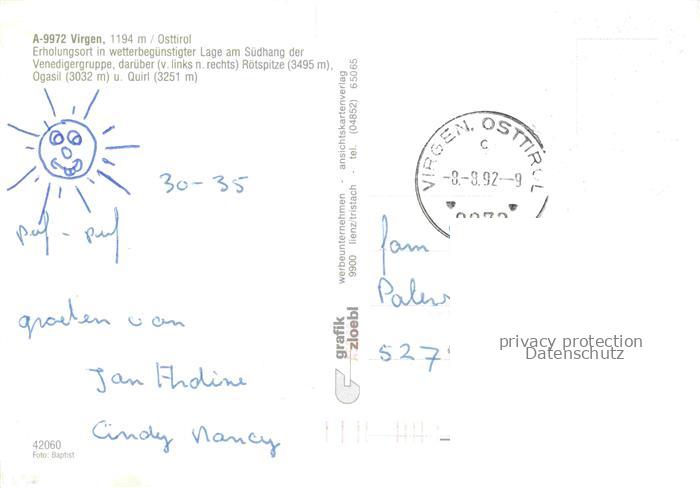 A-9972 Virgen, 1194 m / Osttirol
Erholungsort in wetterbegünstigter Lage am Südhang der
Venedigergruppe, darüber (v. links n. rechts) Rötspitze (3495 m),
Ogasil (3032 m) u. Quirl (3251 m)
30-35
puf - puf
groeten van
Jan Ardine
Cindy Nancy
42060
Foto: Baptist
werbeunternehmen - ansichtskartenverlag
9900 lienz/tristach - tel. (04852) 65065
grafik
zloebl
VIRGEN, OSTTIROL
c
-8.-8.92--9
fam
527
privacy protection
Datenschutz